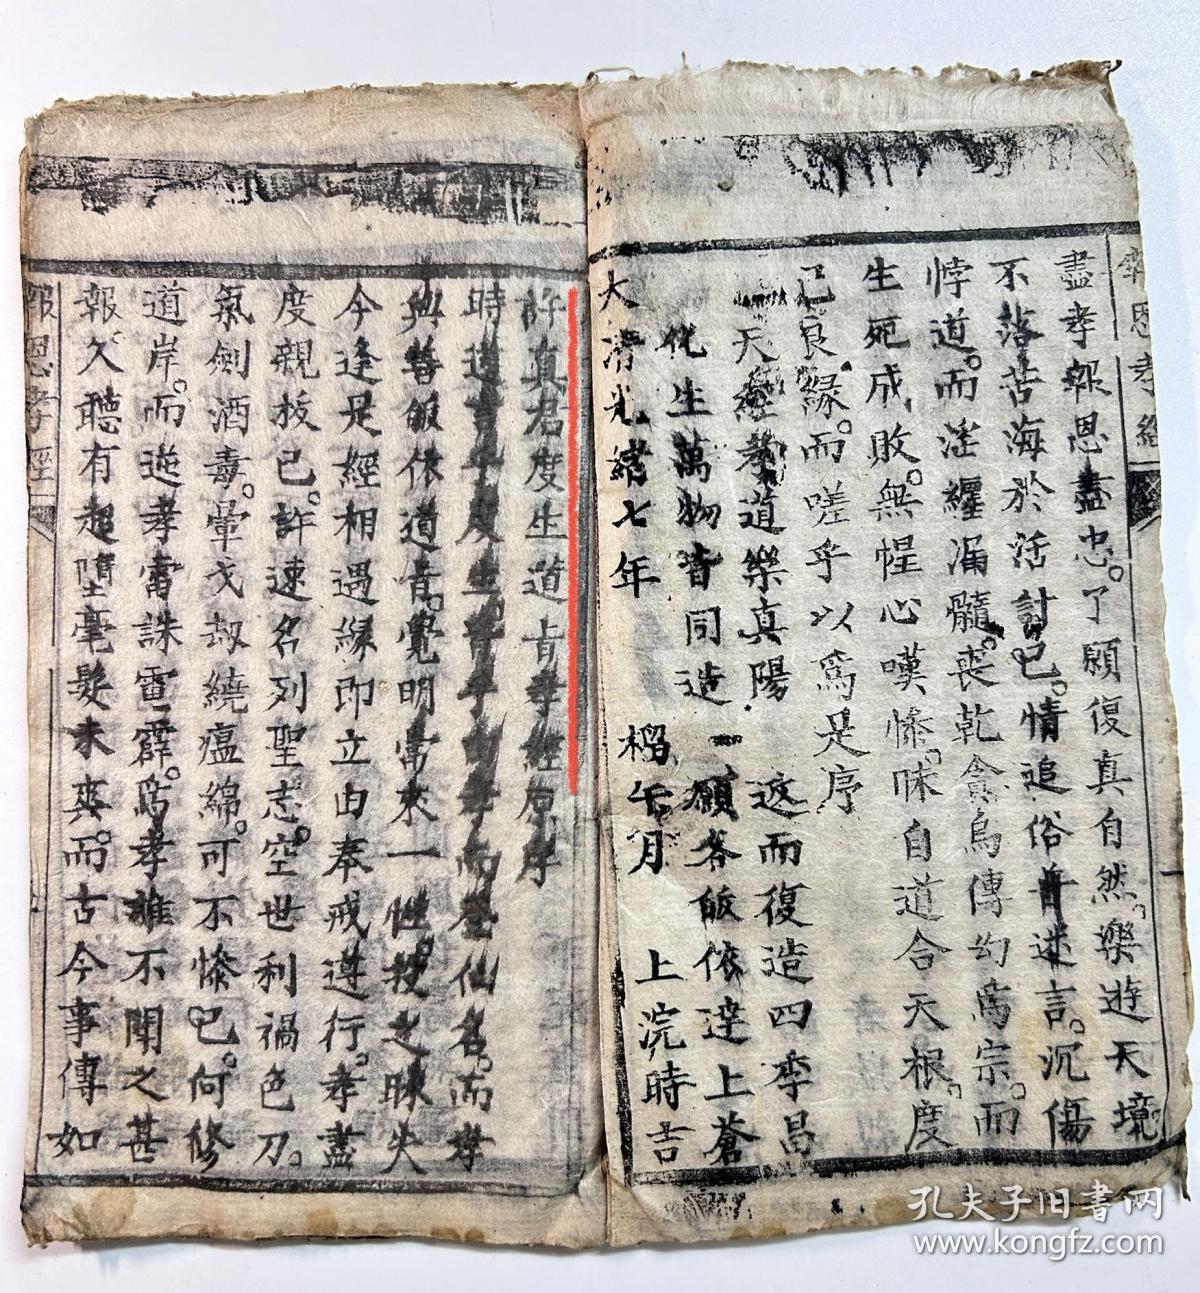 盡孝報恩盡忠。了願復真自然。樂遊天境
不落苦海於活討已。情追俗
言。沉傷
悖道。而淫纏漏髓。喪乾貪烏傳幻為宗。而
生死成敗。無惺心嘆慘。昧自道合天根。度
已良緣。而嗟乎以爲是序
天經孝道樂真陽 遮而復造四季昌
化生萬物皆同造 願各皈依達上蒼
大清光緒七年 榴午月 上浣時吉
許真君度生道旨孝經原序
時道
而登仙名。而孝
與善皈依道旨。覺明當來一性投之昧失
今逢是經相遇緣即立由奉戒遵行。孝盡
度親拔已。許速名列聖志。空世利禍色刀。
氣劍酒毒。暈戈刼繞瘟綿。可不慘已。何修
道岸。而逆孝雷誅電霹。為孝誰不聞之甚
報。久聽有超墮毫髮未爽。而古今事傳如
報恩孝經
孔夫子旧书网
www.kongfz.com